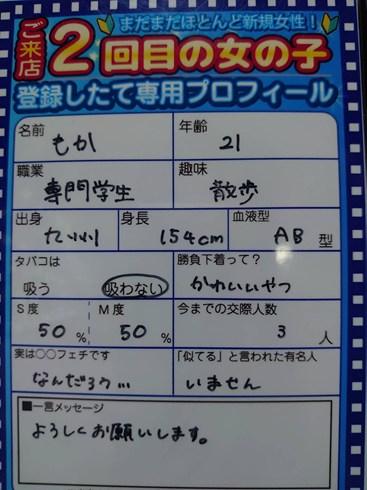 まだまだほとんど新規女性!
ご来店2回目の女の子
登録したて専用プロフィール
名前 もか 年齢 21
職業 専門学生 趣味 散歩
出身 九州 身長 154cm 血液型 AB型
タバコは 勝負下着って?
吸う 吸わない かわいいやつ
S度 50% M度 50% 今までの交際人数 3人
実は○○フェチです 「似てる」と言われた有名人
なんだろう… いません
■一言メッセージ
よろしくお願いします。